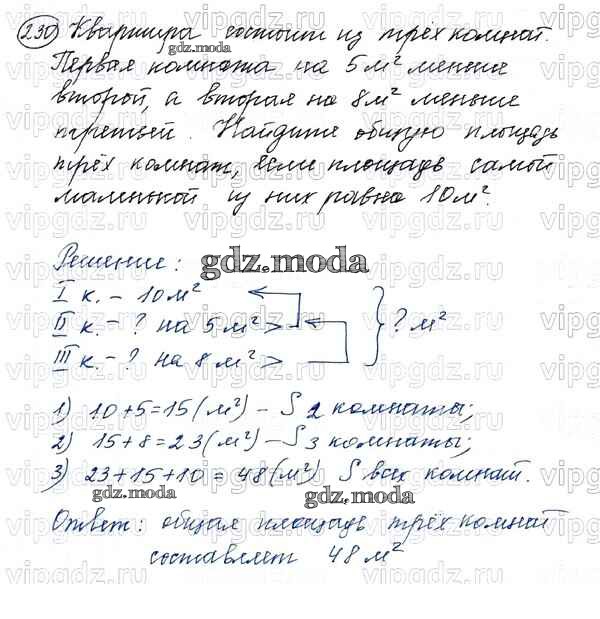 230 Квартира состоит из трёх комнат.
Первая комната на 5 м² меньше
второй, а вторая на 8 м² меньше
третьей. Найдите общую площадь
трёх комнат, если площадь самой
маленькой из них равна 10 м².
Решение: gdz.moda
I к. – 10 м²
II к. – ? на 5 м² > } ? м²
III к. – ? на 8 м² >
1) 10+5=15 (м²) – S 2 комнаты;
2) 15+8=23 (м²) – S 3 комнаты;
3) 23+15+10 = 48 (м²) S всех комнат.
gdz.moda gdz.moda
Ответ: общая площадь трёх комнат
составляет 48 м²
gdz.moda
vipgdz.ru